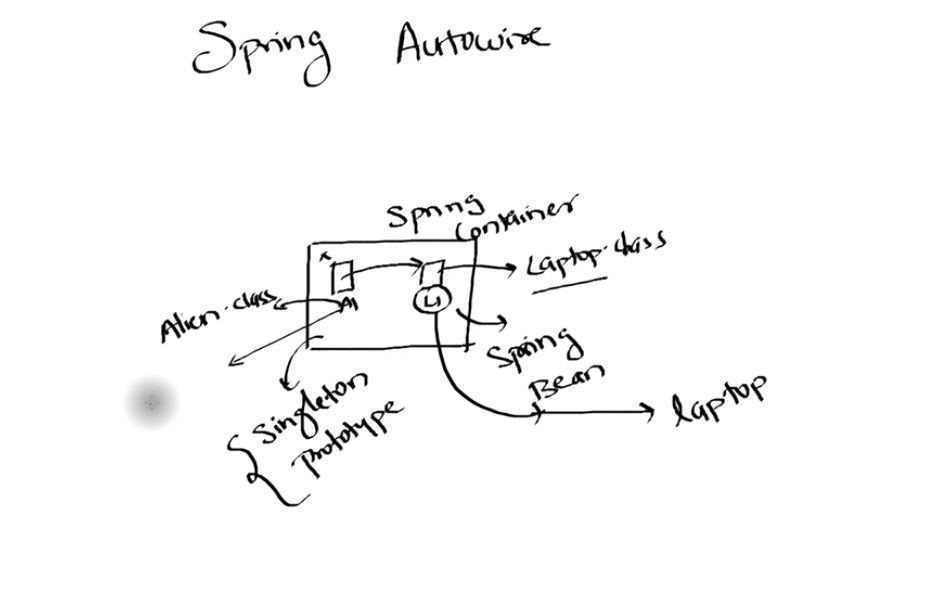 Spring Autowire
Spring
Container
Laptop.class
Alien.class
A1
L1
Spring
Bean
laptop
Singleton
Prototype